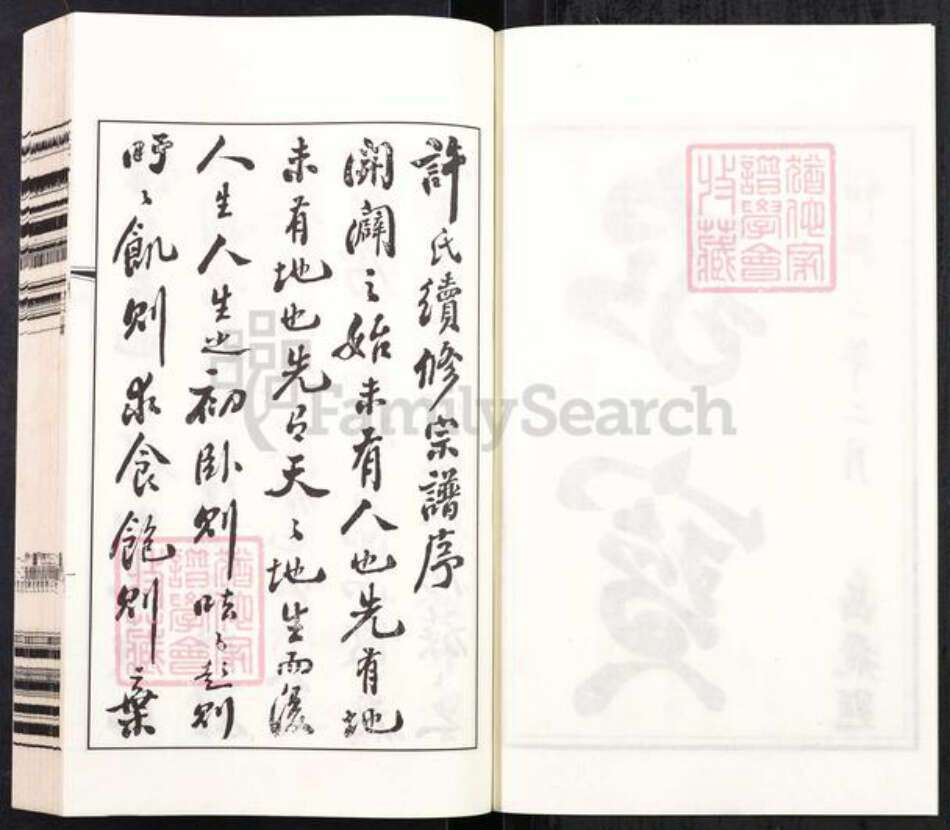 許氏續修宗譜序
開闢之始未有人也先有地
未有地也先有天天地生而後
人生人生之初卧則呿呿起則
吁吁飢則求食飽則棄
譜學會
收藏
FamilySearch